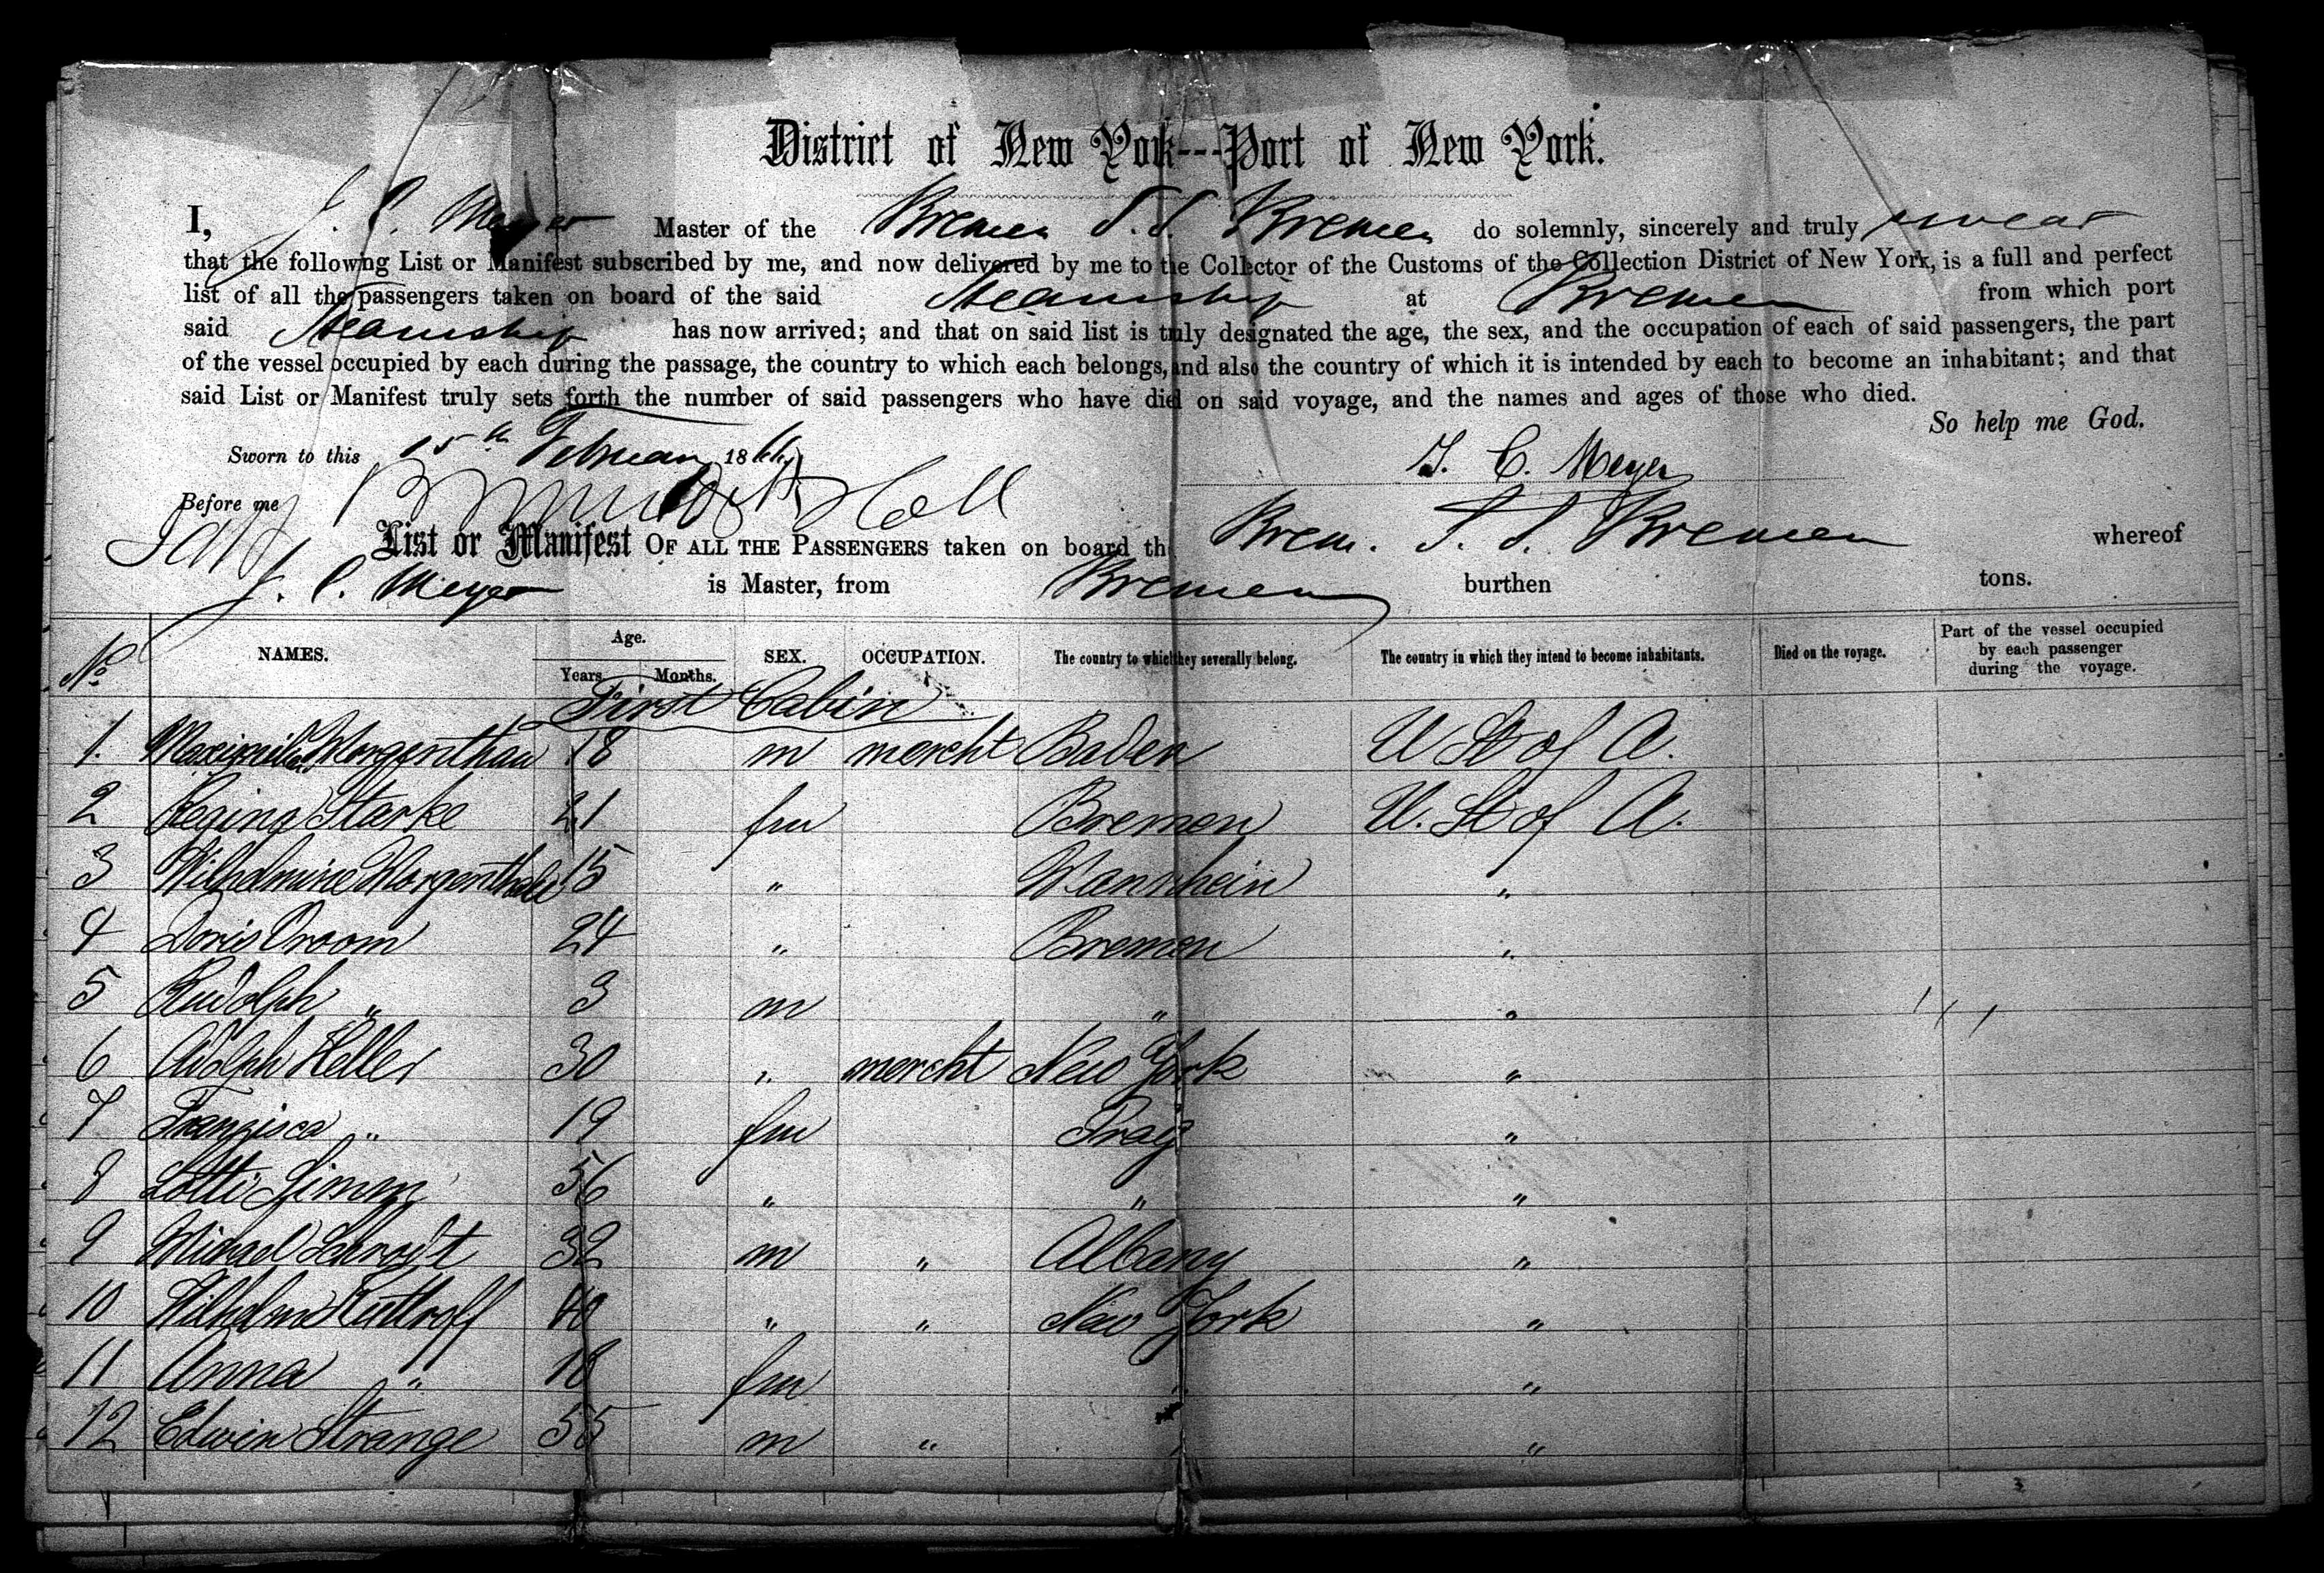 District of New York---Port of New York.
I, J. C. Meyer Master of the Bremen S. S. Bremen do solemnly, sincerely and truly swear
that the following List or Manifest subscribed by me, and now delivered by me to the Collector of the Customs of the Collection District of New York, is a full and perfect
list of all the passengers taken on board of the said Steamship at Bremen from which port
said Steamship has now arrived; and that on said list is truly designated the age, the sex, and the occupation of each of said passengers, the part
of the vessel occupied by each during the passage, the country to which each belongs, and also the country of which it is intended by each to become an inhabitant; and that
said List or Manifest truly sets forth the number of said passengers who have died on said voyage, and the names and ages of those who died.
So help me God.
Sworn to this 15th Februar 1866 J. C. Meyer
Before me
List or Manifest OF ALL THE PASSENGERS taken on board th Brem. S. S. Bremen whereof
J. C. Meyer is Master, from Bremen burthen tons.
No NAMES. Age. Years Months. SEX. OCCUPATION. The country to which they severally belong. The country in which they intend to become inhabitants. Died on the voyage. Part of the vessel occupied by each passenger during the voyage.
First Cabin
1. Maximilian Morgenthau 18 m mercht Baden U St of A.
2 Regina Starke 21 fm Bremen U. St of A.
3 Wilhelmine Morgenthau 15 " Mannheim "
4 Doris Vroom 24 " Bremen "
5 Rudolph " 3 m " "
6 Adolph Keller 30 " mercht New York "
7 Franzisca " 19 fm Prag "
8 Lotti Simm 56 " " "
9 Michael Schrodt 32 m " Albany "
10 Wilhelm Kuttroff 40 " " New York "
11 Anna " 18 fm " "
12 Edwin Strange 55 m " "